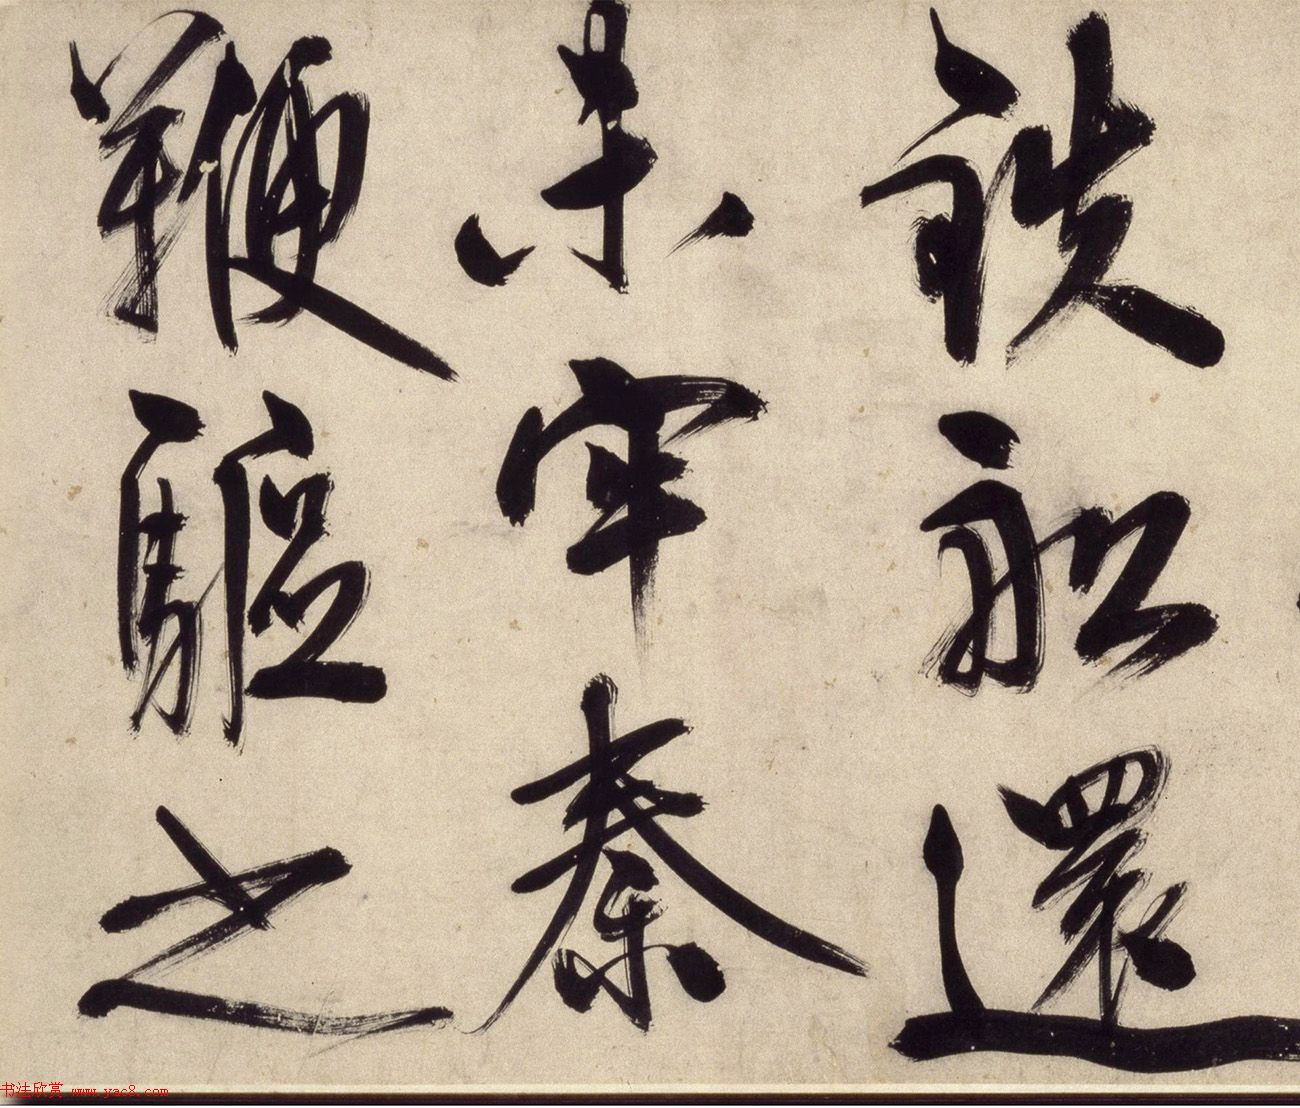 鉄舩還
未牢秦
鞭驅之
书法欣赏 www.yac8.com